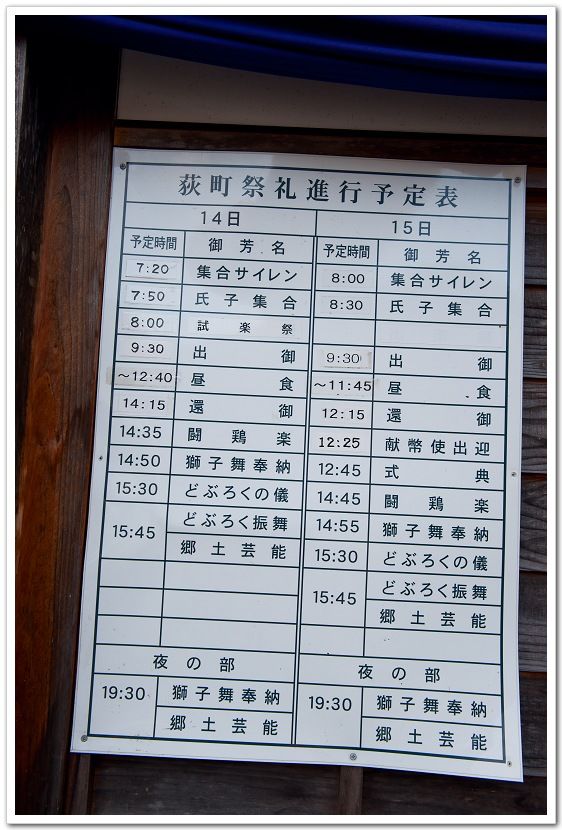 荻町祭礼進行予定表
14日 15日
予定時間 御芳名 予定時間 御芳名
7:20 集合サイレン 8:00 集合サイレン
7:50 氏子集合 8:30 氏子集合
8:00 試楽祭
9:30 出御 9:30 出御
～12:40 昼食 ～11:45 昼食
14:15 還御 12:15 還御
14:35 闘鶏楽 12:25 献幣使出迎
14:50 獅子舞奉納 12:45 式典
15:30 どぶろくの儀 14:45 闘鶏楽
15:45 どぶろく振舞 14:55 獅子舞奉納
郷土芸能 15:30 どぶろくの儀
15:45 どぶろく振舞
郷土芸能
夜の部 夜の部
19:30 獅子舞奉納 19:30 獅子舞奉納
郷土芸能 郷土芸能